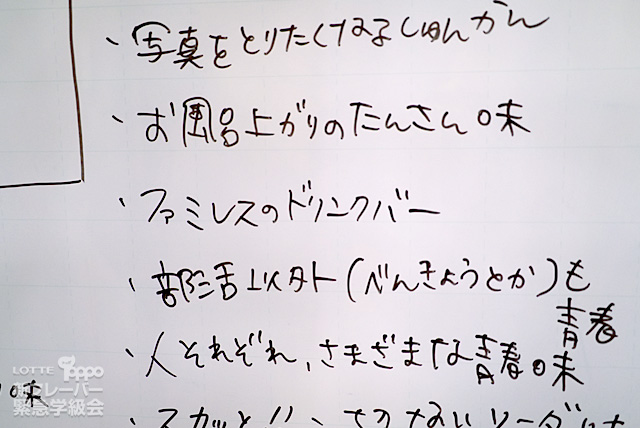 ・写真をとりたくなるしゅんかん
・お風呂上がりのたんさん味
・ファミレスのドリンクバー
・部活以外(べんきょうとか)も
青春
・人それぞれ、さまざまな青春味
味
LOTTE ippo
新フレーバー
緊急学級会